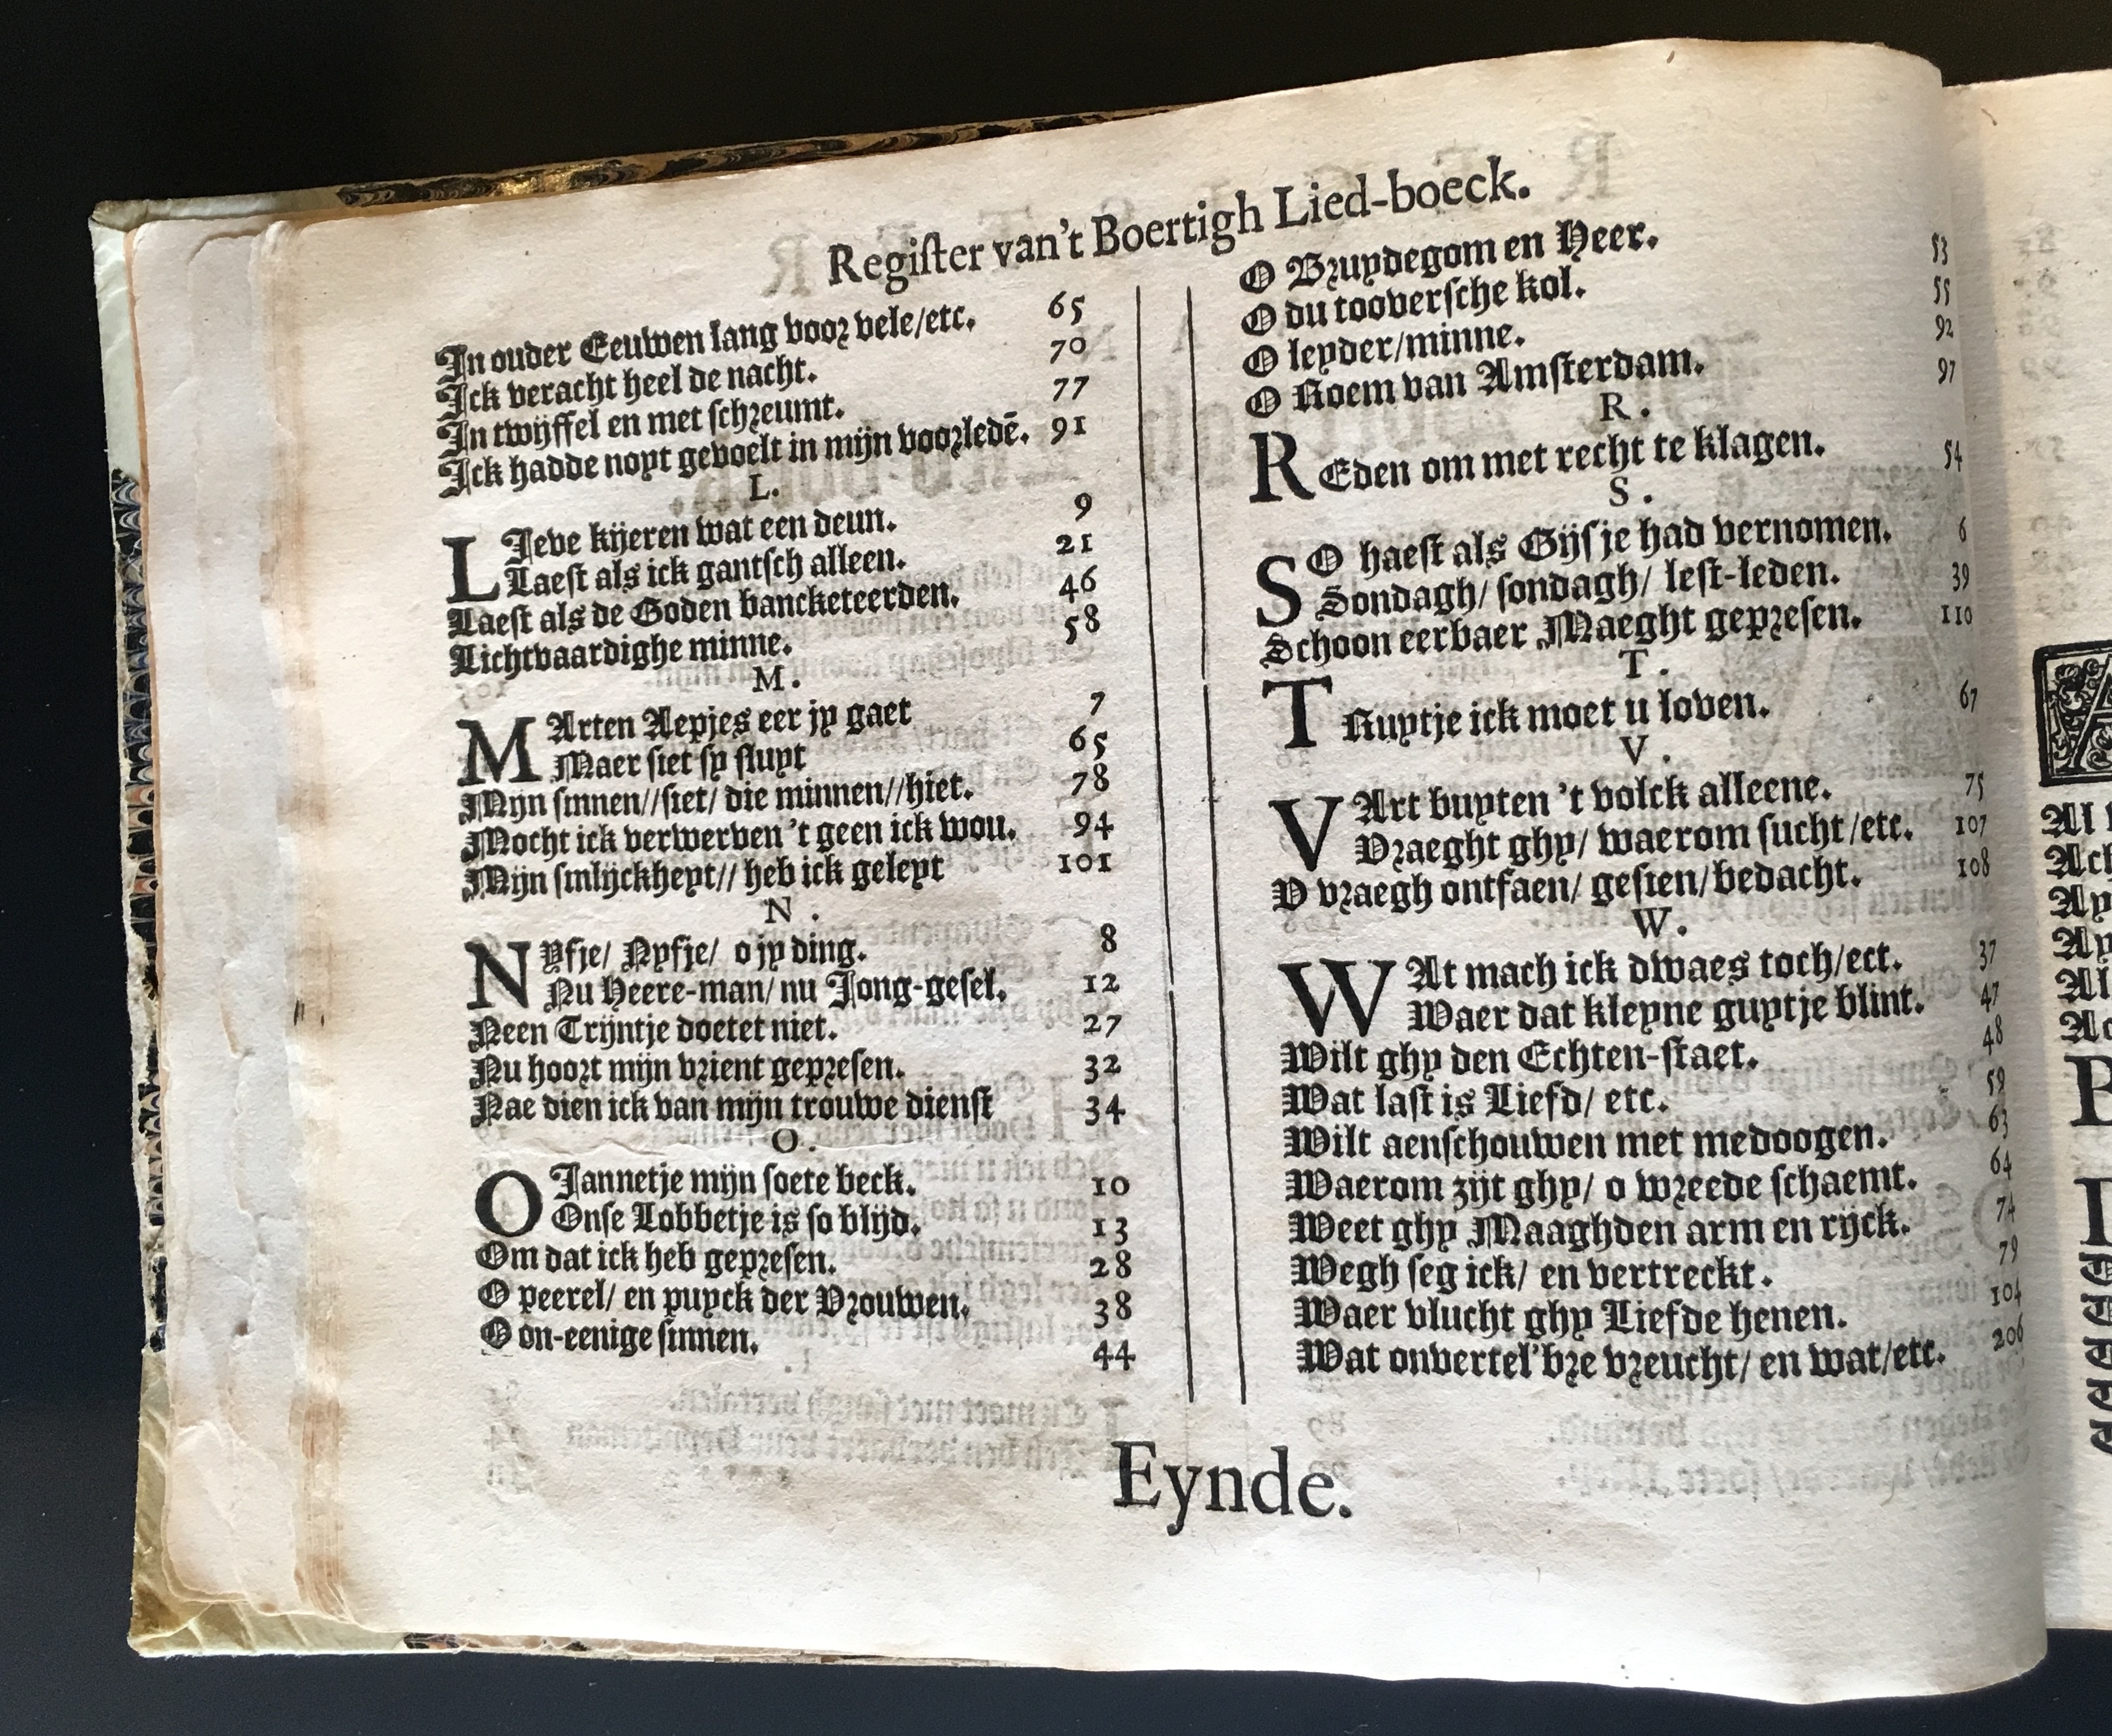 Regiſter van't Boertigh Lied-boeck.
In ouder Eeuwen lang voor vele/etc. 65
Ick veracht heel de nacht. 70
In twijffel en met schreumt. 77
Ick hadde noyt gevoelt in mijn voorledē. 91
L.
LIeve kijeren wat een deun. 9
Laeſt als ick gantſch alleen. 21
Laeſt als de Goden bancketeerden. 46
Lichtvaardighe minne. 58
M.
MArten Aepjes eer jy gaet 7
Maer ſiet ſy ſluyt 65
Mijn ſinnen//ſiet/ die minnen//hiet. 78
Mocht ick verwerven 't geen ick wou. 94
Mijn ſinlijckheyt// heb ick geleyt 101
N.
NYfje/ Nyfje/ o jy ding. 8
Nu Heere-man/ nu Jong-geſel. 12
Neen Trijntje doetet niet. 27
Nu hoort mijn vrient gepreſen. 32
Nae dien ick van mijn trouwe dienſt 34
O.
O Jannetje mijn ſoete beck. 10
Onſe Lobbetje is ſo blijd. 13
Om dat ick heb gepreſen. 28
O peerel/ en puyck der Vrouwen. 38
O on-eenige ſinnen. 44
O Bruydegom en Heer. 53
O du tooverſche kol. 55
O leyder/minne. 92
O Roem van Amſterdam. 97
R.
REden om met recht te klagen. 54
S.
SO haeſt als Gijſje had vernomen. 6
Sondagh/ ſondagh/ leſt-leden. 39
Schoon eerbaer Maeght gepreſen. 110
T.
TRuytje ick moet u loven. 67
V.
VArt buyten 't volck alleene. 75
Vraeght ghy/ waerom ſucht/etc. 107
V vraegh ontfaen/ geſien/bedacht. 108
W.
WAt mach ick dwaes toch/ect. 37
Waer dat kleyne guytje blint. 47
Wilt ghy den Echten-ſtaet. 48
Wat laſt is Liefd/ etc. 59
Wilt aenſchouwen met medoogen. 63
Waerom zijt ghy/ o wreede ſchaemt. 64
Weet ghy Maaghden arm en rijck. 74
Wegh ſeg ick/ en vertreckt. 79
Waer vlucht ghy Liefde henen. 104
Wat onvertel'bre vreucht/ en wat/etc. 206
Eynde.